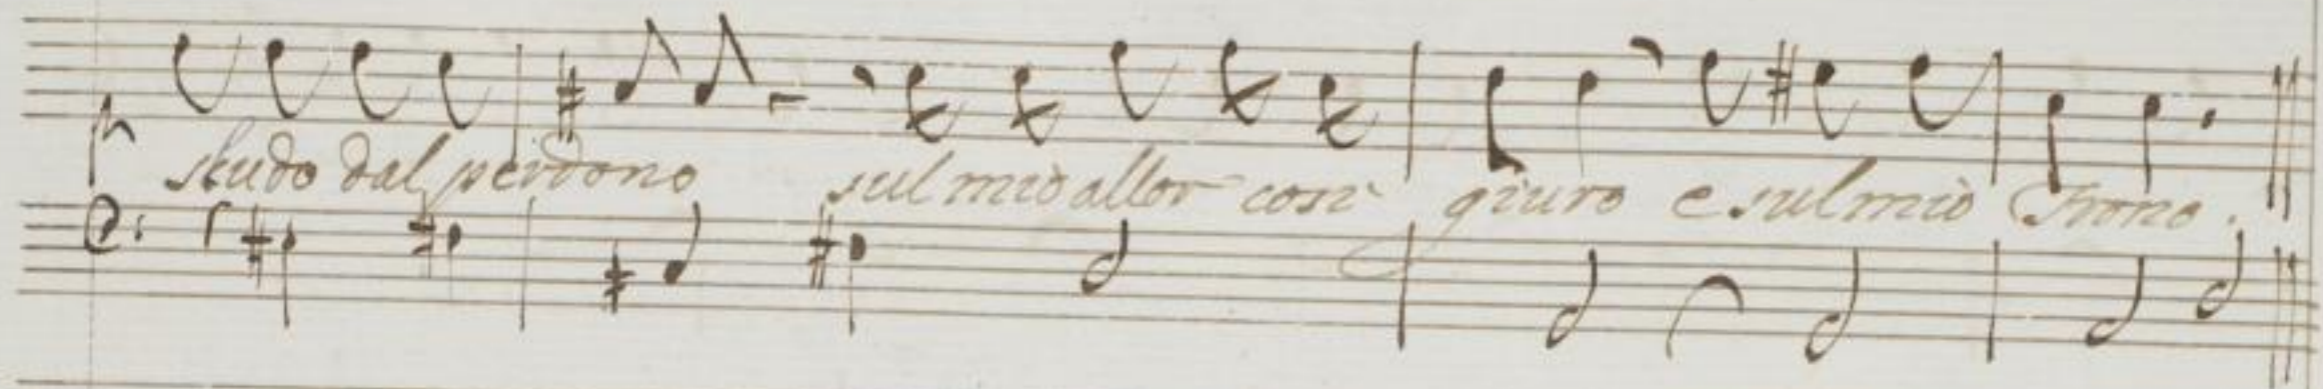 scudo dal perdono sul mio allor così giuro e sul mio Trono.